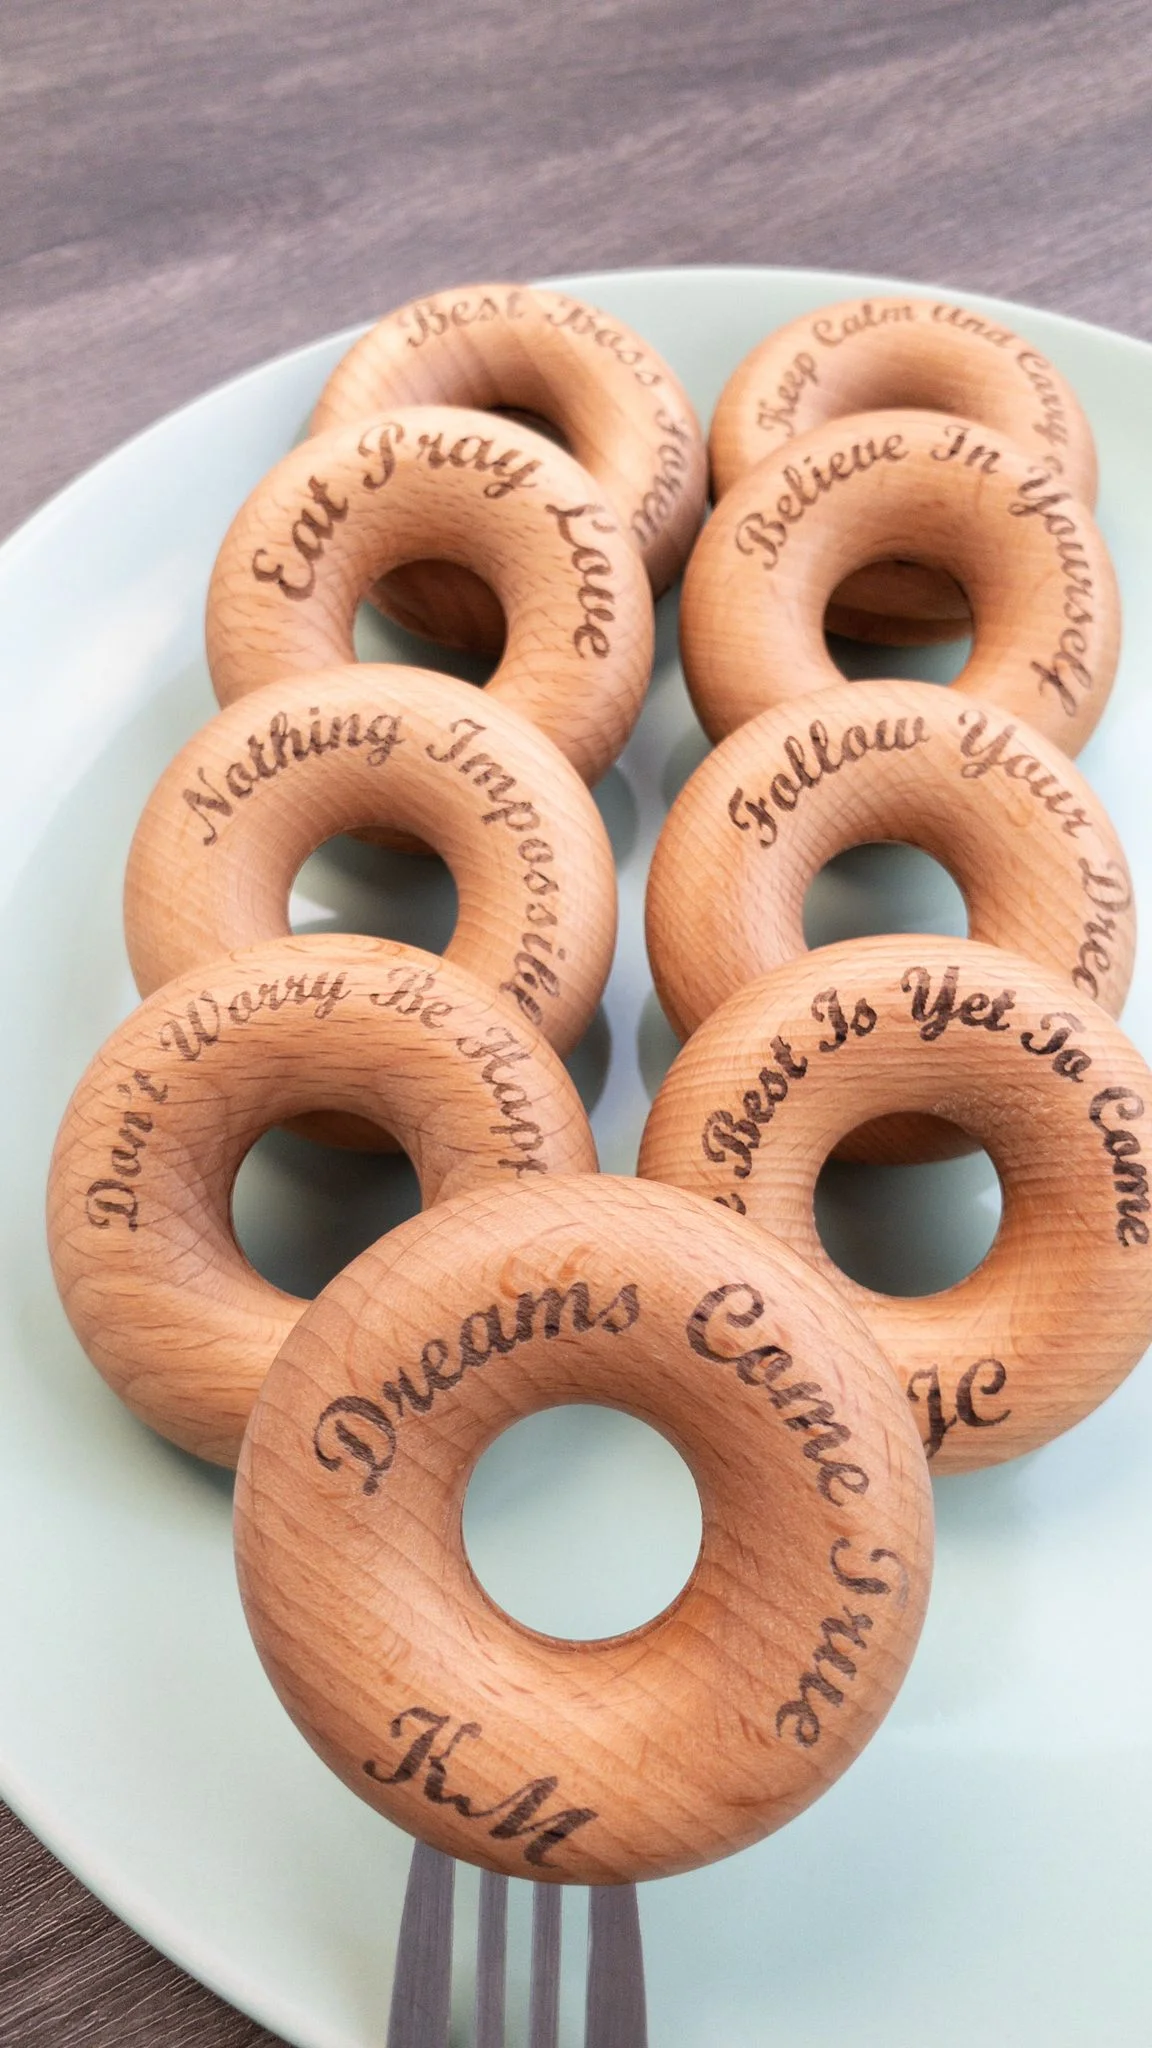 Best Boss Forev
Keep Calm And Carry
Eat Pray Love
Believe In Yourself
Nothing Impossible
Follow Your Drea
Don't Worry Be Happ
Best Is Yet To Come
JC
Dreams Come True
KM